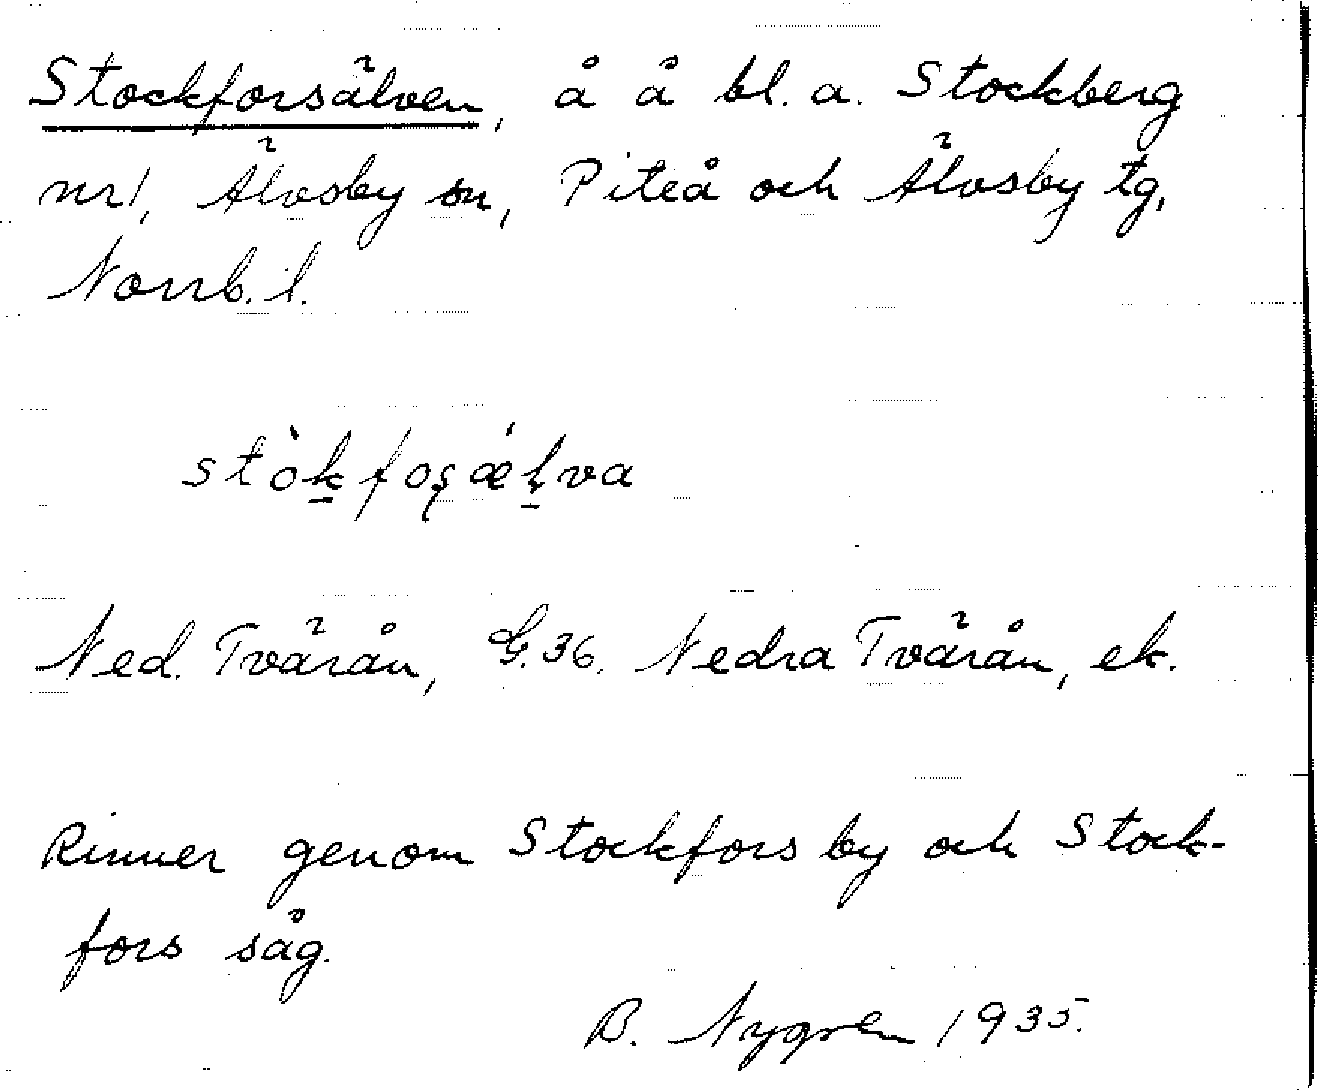 Stockforsälven, å å bl. a. Stockberg
nr 1, Älvsby sn, Piteå och Älvsby tg,
Norrb. l.
stòk̲foʂǽḷva
Ned. Tvärån, G. 36. Nedra Tvärån, ek.
Rinner genom Stockfors by och Stock-
fors såg.
B. Nygren 1935.